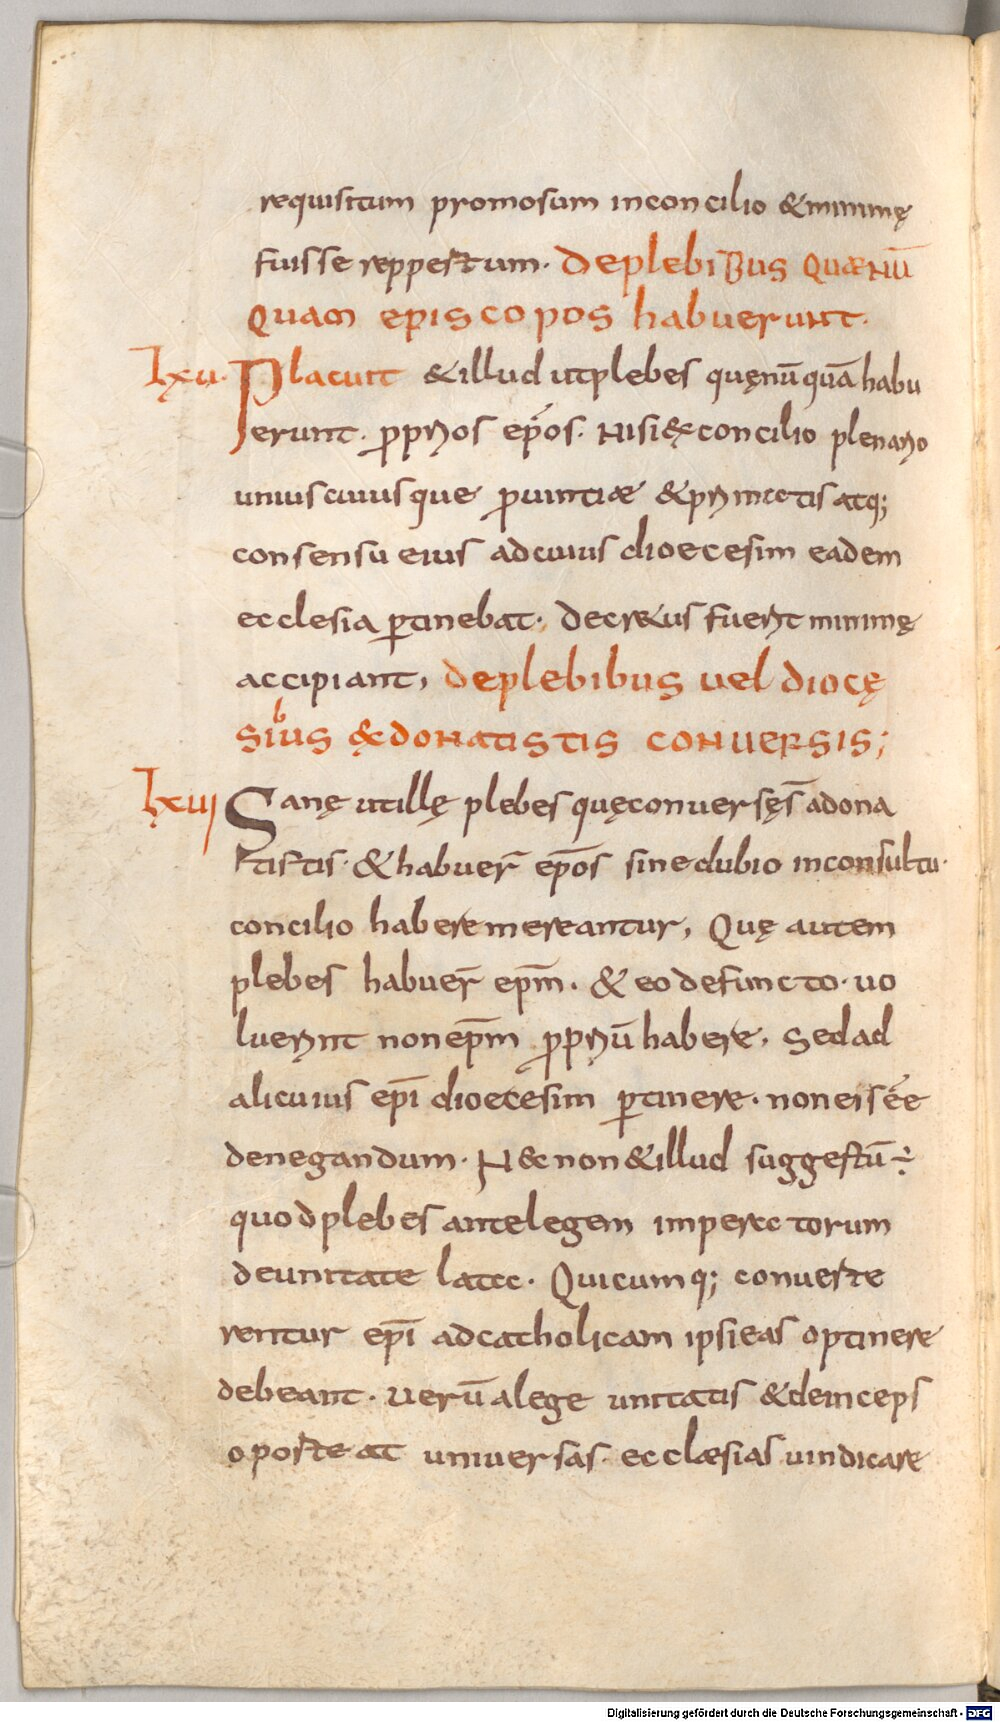 requisitum promosum inconcilio &minimę
fuisse reppertum. Deplebibus quænū
quam episcopos habuerunt.
lxu. Placuit &illud utplebes quęnūquā habu
erunt. proprios epōs. Nisi&concilio plenario
uniuscuiusque prouintiæ &primatis atq;
consensu eius adcuius dioecesim eadem
ecclesia ptinebat. decr&us fuerit minimę
accipiant, deplebibus uel diocę
sibus &donatistis conuersis;
lxui Sanę utillę plebes quęconuersęs̄ adona
tistis. &habuer̄ epōs sinedubio inconsultu.
concilio haberemereantur, Quę autem
plebes habuer̄ epm̄. & eodefuncto. uo
luerint nonepm̄ propriū habere. Sedad
alicuius epī dioecesim ptinere. noneisēe
denegandum. Necnon&illud suggestū÷
quodplebes antelegem imperatorum
deunitate latæ. Quicumq; conuerte
rentur epī adcatholicam ipsieas optinere
debeant. uerū alege unitatis &deinceps
oporteat uniuersas. ecclæsias uindicare
Digitalisierung gefördert durch die Deutsche Forschungsgemeinschaft - DFG